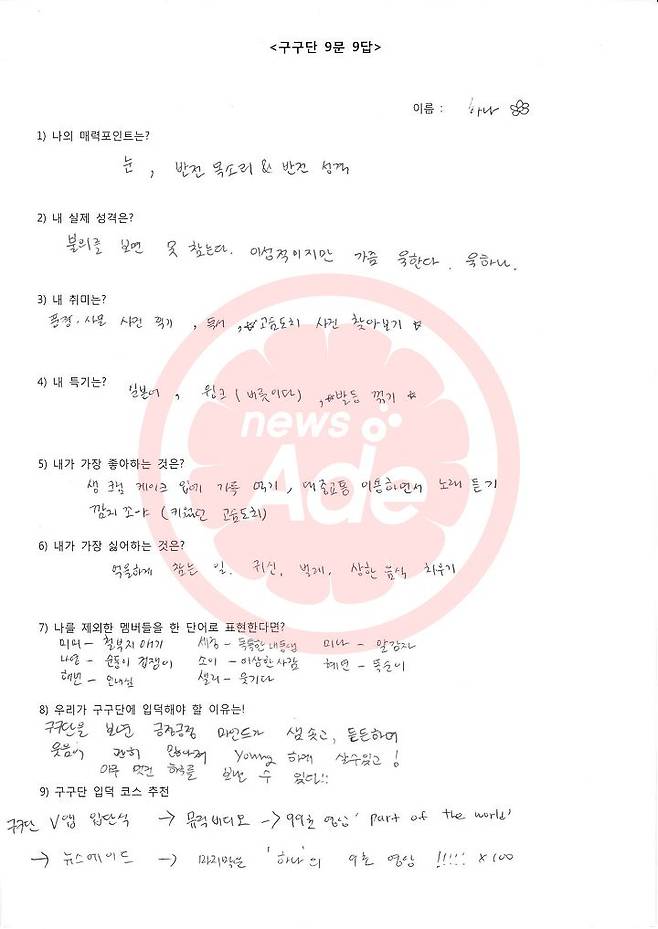 <구구단 9문 9답>
이름 : 하나
1) 나의 매력포인트는?
눈, 반전 목소리 & 반전 성격
2) 내 실제 성격은?
불의를 보면 못 참는다. 이성적이지만 가끔 욱한다. 욱하나.
3) 내 취미는?
풍경·사물 사진 찍기, 독서, ☆고슴도치 사진 찾아보기☆
4) 내 특기는? 일본어, 윙크 (버릇이다), ☆발등 꺾기☆
news
Ade
5) 내가 가장 좋아하는 것은?
생크림 케이크 입에 가득 먹기, 대중교통 이용하면서 노래 듣기
깜지 쪼야 (키웠던 고슴도치)
6) 내가 가장 싫어하는 것은?
억울하게 참는 일. 귀신, 벌레, 상한 음식 치우기
7) 나를 제외한 멤버들을 한 단어로 표현한다면?
미미 - 철부지 애기 세정 - 똑똑한 대통령 미나 - 말감자
나영 - 순둥이 겁쟁이 소이 - 이상한 사람 혜연 - 뚝순이
해빈 - 인내심 샐리 - 웃기다
8) 우리가 구구단에 입덕해야 할 이유는!
구구단을 보면 긍정긍정 마인드가 샘솟고, 튼튼하며
웃음이 괜히 Young 하게 살 수 있고!
아주 멋진 하루를 보낼 수 있다!!
9) 구구단 입덕 코스 추천
구구단 V앱 입단식 → 뮤직비디오 → 99초 영상 'part of the world'
→ 뉴스에이드 → 마지막은 '하나'의 9초 영상 !!!!! x100